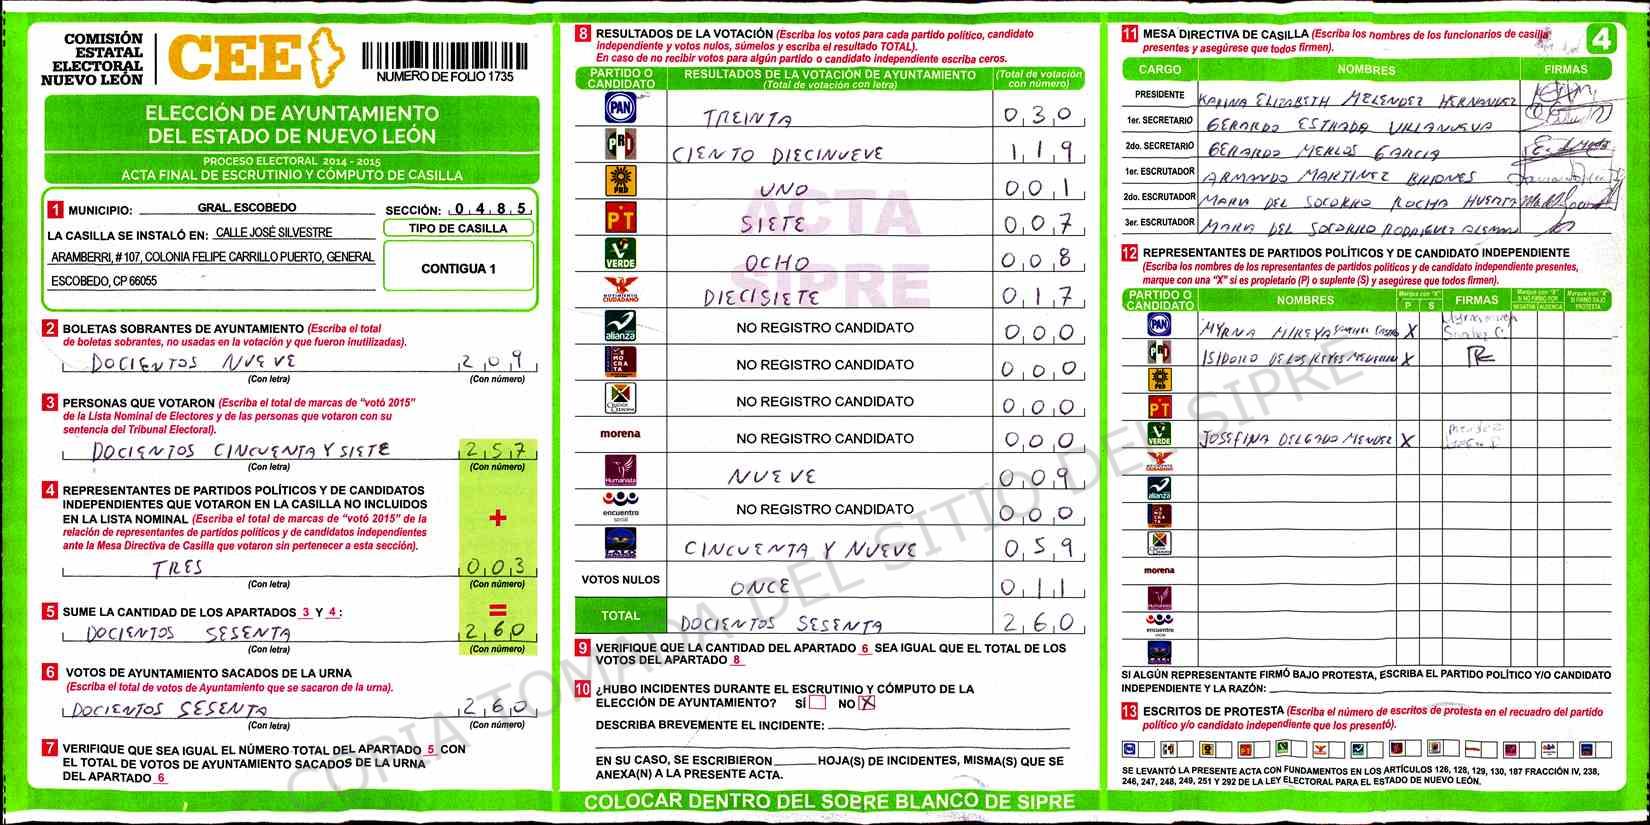 COMISIÓN
ESTATAL
ELECTORAL
NUEVO LEÓN
CEE
NUMERO DE FOLIO 1735
ELECCIÓN DE AYUNTAMIENTO
DEL ESTADO DE NUEVO LEÓN
PROCESO ELECTORAL 2014 - 2015
ACTA FINAL DE ESCRUTINIO Y CÓMPUTO DE CASILLA
1 MUNICIPIO: GRAL. ESCOBEDO SECCIÓN: 0 4 8 5
LA CASILLA SE INSTALÓ EN: CALLE JOSÉ SILVESTRE
ARAMBERRI, # 107, COLONIA FELIPE CARRILLO PUERTO, GENERAL
ESCOBEDO, CP 66055
TIPO DE CASILLA
CONTIGUA 1
2 BOLETAS SOBRANTES DE AYUNTAMIENTO (Escriba el total
de boletas sobrantes, no usadas en la votación y que fueron inutilizadas).
DOCIENTOS NUEVE 2 0 9
(Con letra) (Con número)
3 PERSONAS QUE VOTARON (Escriba el total de marcas de "votó 2015"
de la Lista Nominal de Electores y de las personas que votaron con su
sentencia del Tribunal Electoral).
DOCIENTOS CINCUENTA Y SIETE 2 5 7
(Con letra) (Con número)
4 REPRESENTANTES DE PARTIDOS POLÍTICOS Y DE CANDIDATOS
INDEPENDIENTES QUE VOTARON EN LA CASILLA NO INCLUIDOS
EN LA LISTA NOMINAL (Escriba el total de marcas de "votó 2015" de la
relación de representantes de partidos políticos y de candidatos independientes
ante la Mesa Directiva de Casilla que votaron sin pertenecer a esta sección).
+
TRES 0 0 3
(Con letra) (Con número)
5 SUME LA CANTIDAD DE LOS APARTADOS 3 Y 4: =
DOCIENTOS SESENTA 2 6 0
(Con letra) (Con número)
6 VOTOS DE AYUNTAMIENTO SACADOS DE LA URNA
(Escriba el total de votos de Ayuntamiento que se sacaron de la urna).
DOCIENTOS SESENTA 2 6 0
(Con letra) (Con número)
7 VERIFIQUE QUE SEA IGUAL EL NÚMERO TOTAL DEL APARTADO 5 CON
EL TOTAL DE VOTOS DE AYUNTAMIENTO SACADOS DE LA URNA
DEL APARTADO 6
8 RESULTADOS DE LA VOTACIÓN (Escriba los votos para cada partido político, candidato
independiente y votos nulos, súmelos y escriba el resultado TOTAL).
En caso de no recibir votos para algún partido o candidato independiente escriba ceros.
PARTIDO O CANDIDATO RESULTADOS DE LA VOTACIÓN DE AYUNTAMIENTO (Total de votación con letra) (Total de votación con número)
PAN TREINTA 0 3 0
PRI CIENTO DIECINUEVE 1 1 9
PRD UNO 0 0 1
PT SIETE 0 0 7
VERDE OCHO 0 0 8
MOVIMIENTO CIUDADANO DIECISIETE 0 1 7
alianza NO REGISTRO CANDIDATO 0 0 0
DEMOCRATA NO REGISTRO CANDIDATO 0 0 0
NO REGISTRO CANDIDATO 0 0 0
morena NO REGISTRO CANDIDATO 0 0 0
Humanista NUEVE 0 0 9
encuentro social NO REGISTRO CANDIDATO 0 0 0
CINCUENTA Y NUEVE 0 5 9
VOTOS NULOS ONCE 0 1 1
TOTAL DOCIENTOS SESENTA 2 6 0
ACTA
SIPRE
9 VERIFIQUE QUE LA CANTIDAD DEL APARTADO 6 SEA IGUAL QUE EL TOTAL DE LOS
VOTOS DEL APARTADO 8
10 ¿HUBO INCIDENTES DURANTE EL ESCRUTINIO Y CÓMPUTO DE LA
ELECCIÓN DE AYUNTAMIENTO? SÍ NO X
DESCRIBA BREVEMENTE EL INCIDENTE:
EN SU CASO, SE ESCRIBIERON HOJA(S) DE INCIDENTES, MISMA(S) QUE SE
ANEXA(N) A LA PRESENTE ACTA.
COLOCAR DENTRO DEL SOBRE BLANCO DE SIPRE
11 MESA DIRECTIVA DE CASILLA (Escriba los nombres de los funcionarios de casilla
presentes y asegúrese que todos firmen).
4
CARGO NOMBRES FIRMAS
PRESIDENTE KARINA ELIZABETH MELENDEZ HERNANDEZ
1er. SECRETARIO GERARDO ESTRADA VILLANUEVA
2do. SECRETARIO GERARDO MERLOS GARCIA
1er. ESCRUTADOR ARMANDO MARTINEZ BRIONES
2do. ESCRUTADOR MARIA DEL SOCORRO ROCHA HUERTA
3er. ESCRUTADOR MARIA DEL SOCORRO RODRIGUEZ ALEMAN
12 REPRESENTANTES DE PARTIDOS POLÍTICOS Y DE CANDIDATO INDEPENDIENTE
(Escriba los nombres de los representantes de partidos políticos y de candidato independiente presentes,
marque con una "X" si es propietario (P) o suplente (S) y asegúrese que todos firmen).
PARTIDO O CANDIDATO NOMBRES Marque con "X" P S FIRMAS Marque con "X" SI NO FIRMÓ POR NEGATIVA AUSENCIA Marque con "X" SI FIRMÓ BAJO PROTESTA
PAN MYRNA MIREYA X
PRI ISIDORO DE LOS REYES X
PRD
PT
VERDE JOSEFINA DELGADO MENDEZ X
alianza
morena
Humanista
encuentro social
SI ALGÚN REPRESENTANTE FIRMÓ BAJO PROTESTA, ESCRIBA EL PARTIDO POLÍTICO Y/O CANDIDATO
INDEPENDIENTE Y LA RAZÓN:
13 ESCRITOS DE PROTESTA (Escriba el número de escritos de protesta en el recuadro del partido
político y/o candidato independiente que los presentó).
SE LEVANTÓ LA PRESENTE ACTA CON FUNDAMENTOS EN LOS ARTÍCULOS 126, 128, 129, 130, 187 FRACCIÓN IV, 238,
246, 247, 248, 249, 251 Y 292 DE LA LEY ELECTORAL PARA EL ESTADO DE NUEVO LEÓN.
COPIA TOMADA DEL SITIO DEL SIPRE